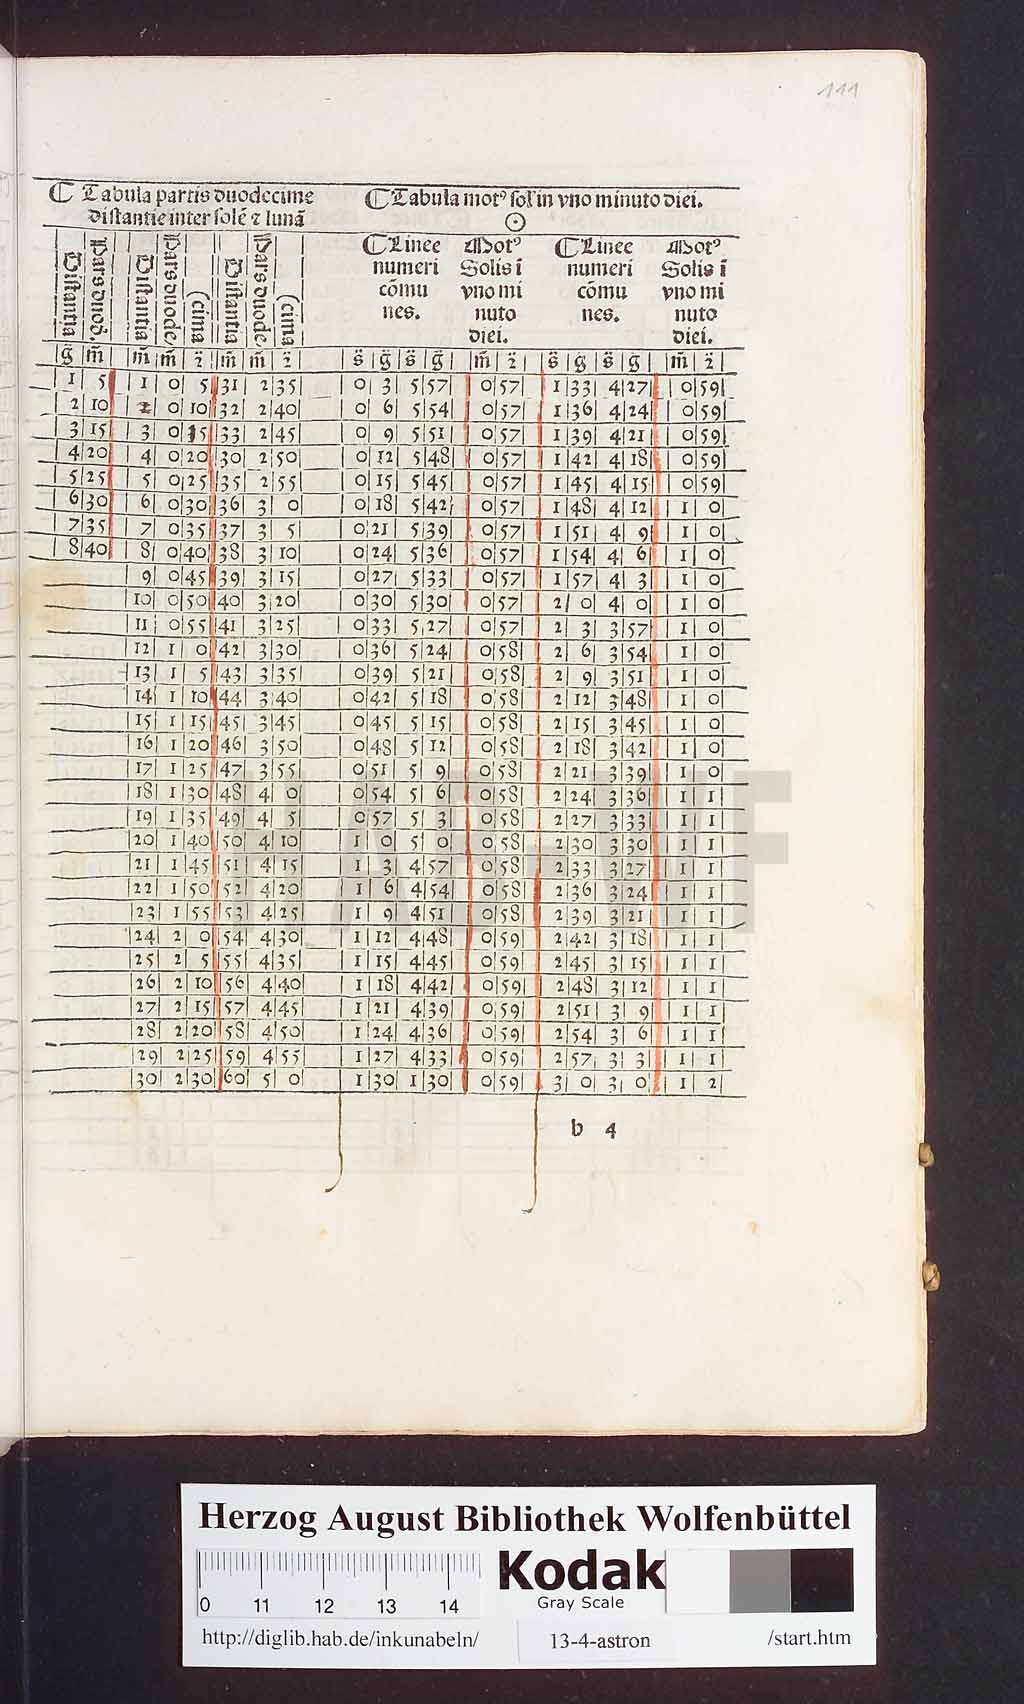 111
Tabula partis duodecime
distantie inter solē ⁊ lunā
Tabula mot⁹ sol̕ in vno minuto diei.
☉
Distantia
Pars duod.
Distantia
Pars duode
(cima
Distantia
Pars duode
(cima
Linee
numeri
cōmu
nes.
Mot⁹
Solis ī
vno mi
nuto
diei.
Linee
numeri
cōmu
nes.
Mot⁹
Solis ī
vno mi
nuto
diei.
g̈ m̄ m̄ m̄ z̈ m̄ m̄ z̈ s̈ g̈ s̈ g̈ m̄ z̈ s̈ g s̈ g m̄ z̈
1 5 1 0 5 31 2 35 0 3 5 57 0 57 1 33 4 27 0 59
2 10 2 0 10 32 2 40 0 6 5 54 0 57 1 36 4 24 0 59
3 15 3 0 15 33 2 45 0 9 5 51 0 57 1 39 4 21 0 59
4 20 4 0 20 30 2 50 0 12 5 48 0 57 1 42 4 18 0 59
5 25 5 0 25 35 2 55 0 15 5 45 0 57 1 45 4 15 0 59
6 30 6 0 30 36 3 0 0 18 5 42 0 57 1 48 4 12 1 0
7 35 7 0 35 37 3 5 0 21 5 39 0 57 1 51 4 9 1 0
8 40 8 0 40 38 3 10 0 24 5 36 0 57 1 54 4 6 1 0
9 0 45 39 3 15 0 27 5 33 0 57 1 57 4 3 1 0
10 0 50 40 3 20 0 30 5 30 0 57 2 0 4 0 1 0
11 0 55 41 3 25 0 33 5 27 0 57 2 3 3 57 1 0
12 1 0 42 3 30 0 36 5 24 0 58 2 6 3 54 1 0
13 1 5 43 3 35 0 39 5 21 0 58 2 9 3 51 1 0
14 1 10 44 3 40 0 42 5 18 0 58 2 12 3 48 1 0
15 1 15 45 3 45 0 45 5 15 0 58 2 15 3 45 1 0
16 1 20 46 3 50 0 48 5 12 0 58 2 18 3 42 1 0
17 1 25 47 3 55 0 51 5 9 0 58 2 21 3 39 1 0
18 1 30 48 4 0 0 54 5 6 0 58 2 24 3 36 1 1
19 1 35 49 4 5 0 57 5 3 0 58 2 27 3 33 1 1
20 1 40 50 4 10 1 0 5 0 0 58 2 30 3 30 1 1
21 1 45 51 4 15 1 3 4 57 0 58 2 33 3 27 1 1
22 1 50 52 4 20 1 6 4 54 0 58 2 36 3 24 1 1
23 1 55 53 4 25 1 9 4 51 0 58 2 39 3 21 1 1
24 2 0 54 4 30 1 12 4 48 0 59 2 42 3 18 1 1
25 2 5 55 4 35 1 15 4 45 0 59 2 45 3 15 1 1
26 2 10 56 4 40 1 18 4 42 0 59 2 48 3 12 1 1
27 2 15 57 4 45 1 21 4 39 0 59 2 51 3 9 1 1
28 2 20 58 4 50 1 24 4 36 0 59 2 54 3 6 1 1
29 2 25 59 4 55 1 27 4 33 0 59 2 57 3 3 1 1
30 2 30 60 5 0 1 30 1 30 0 59 3 0 3 0 1 2
b 4
Herzog August Bibliothek Wolfenbüttel
Kodak
Gray Scale
0 11 12 13 14
http://diglib.hab.de/inkunabeln/ 13-4-astron /start.htm